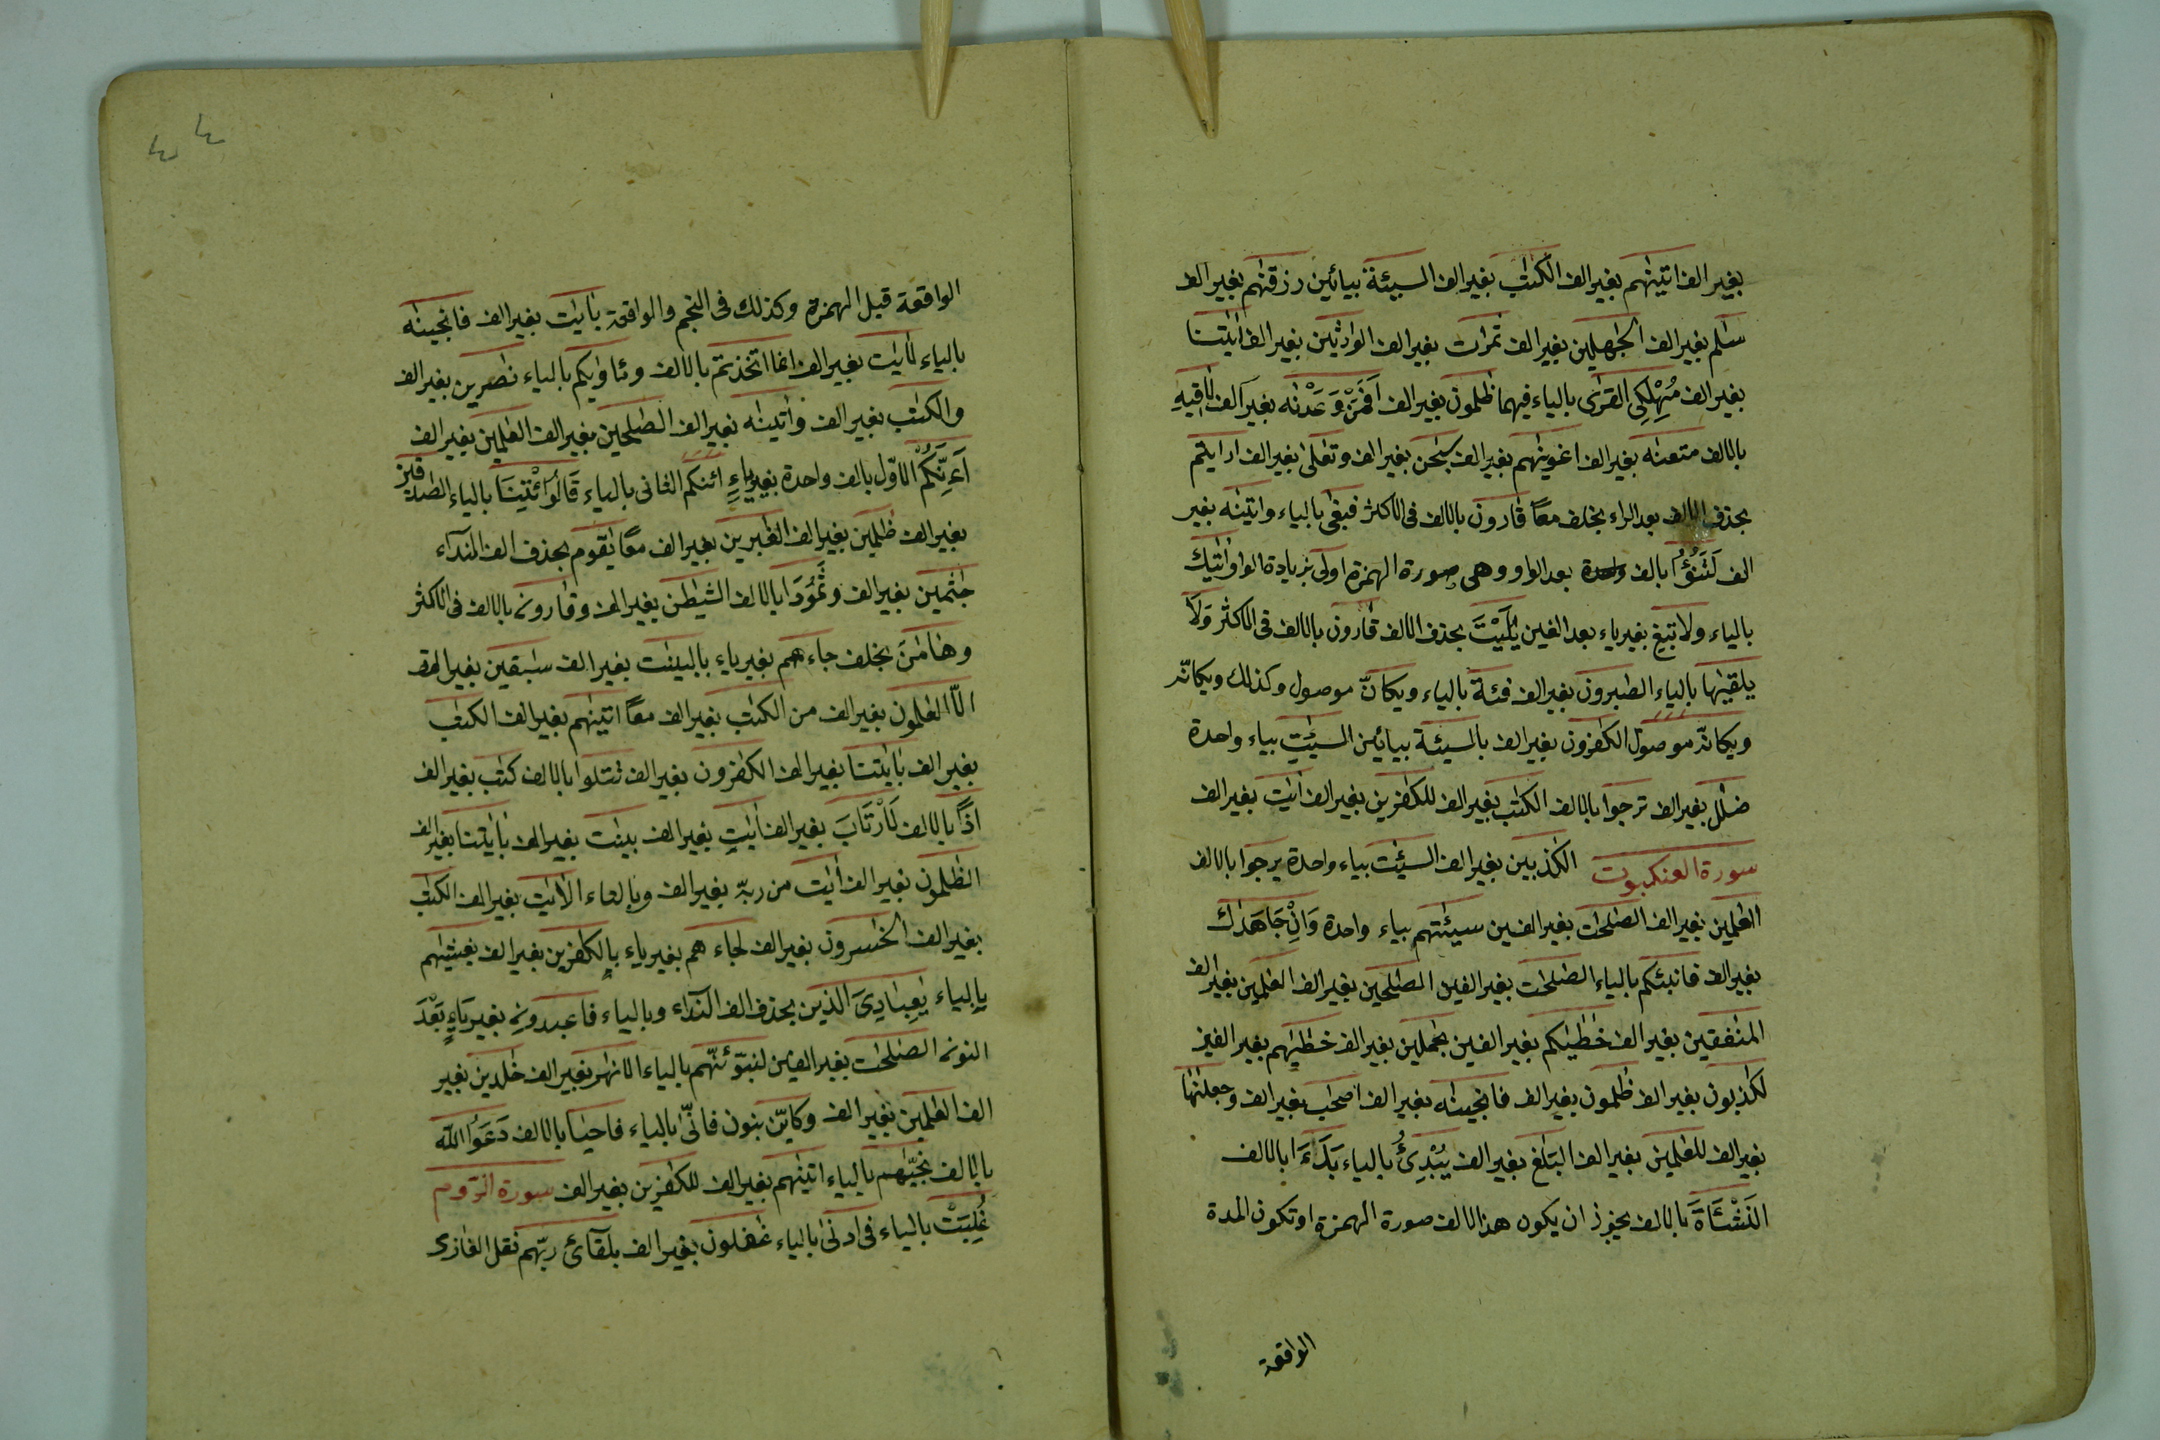 بغير الف اتينهم بغير الف الكتب بغير الف السيئة بيائين رزقنهم بغير الف
سلم بغير الف الجهلين بغير الف ثمرات بغير الف الوارثين بغير الف ايتنا
بغير الف مُهْلِكِى القرى بالياء فيهما ظلمون بغير الف اَفَمَنْ وَعَدْنٰه بغير الف لاقيهِ
بالالف متعنٰه بغير الف اغوينهم بغير الف سبحن بغير الف وتعلى بغير الف ارايتم
بحذف الالف بعد الراء بخلف معًا قارون بالالف فى الاكثر فبغى بالياء واتينه بغير
الف لَتَنُوْٓاُ بالف واحدة بعد الواو وهى صورة الهمزة اولى بزيادة الواو اٰتٰيك
بالياء ولا تبغ بغير ياء بعد الغين يٰلَيْتَ بحذف الالف قارون بالالف فى الاكثر وَلَا
يلقيٰها بالياء الصبرون بغير الف فئة بالياء ويكانّ موصول وكذلك ويكانّه
ويكانّه موصول الكفرون بغير الف بالسيئة بيائين السيئتِ بياء واحدة
ضلل بغير الف ترجوا بالالف الكتب بغير الف للكفرين بغير الف ايت بغير الف
سورة العنكبوت الكذبين بغير الف السيئت بياء واحدة يرجوا بالالف
العلمين بغير الف الصلحت بغير الفين سيئتهم بياء واحدة وَاِنْ جَاهَدٰكَ
بغير الف فانبئكم بالياء الصلحت بغير الفين الصلحين بغير الف العلمين بغير الف
المنفقين بغير الف خطيكم بغير الفين بحملين بغير الف خطيهم بغير الفين
لكذبون بغير الف ظلمون بغير الف فانجينه بغير الف اصحب بغير الف وجعلنها
بغير الف للعلمين بغير الف البلغ بغير الف يُبْدِئُ بالياء بَدَءَ ا بالالف
النَشْـَٔاةَ بالالف يجوز ان يكون هذا الالف صورة الهمزة او تكون المدة
الواقعة
الواقعة قبل الهمزة وكذلك فى النجم والواقعة بايت بغير الف فانجينه
بالياء لايت بغير الف انما اتخذتم بالالف وماويكم بالياء نصرين بغير الف
والكتب بغير الف واتينه بغير الف الصلحين بغير الف العلمين بغير الف
اَءِنَّكُمْ الاوّل بالف واحدة بغير ياءٍ ائنكم الثانى بالياء قَالُوا ائْتِنَا بالياء الصدقين
بغير الف ظلمين بغير الف الغبرين بغير الف معًا يٰقوم بحذف الف النداء
جثمين بغير الف وثَمُوْدَا بالالف الشيطن بغير الف وقارون بالالف فى الاكثر
وهامٰنَ بخلف جاءهم بغير ياء بالبينت بغير الف سبقين بغير الف
الّا العلمون بغير الف من الكتب بغير الف معًا اتينهم بغير الف الكتب
بغير الف بايتنا بغير الف الكفرون بغير الف تتلوا بالالف كتب بغير الف
اذًا بالالف لَارْتَابَ بغير الف ايتٍ بغير الف بينت بغير الف بايتنا بغير الف
الظلمون بغير الف ايت من ربّه بغير الف وبالتاء الايت بغير الف الكتب
بغير الف الخسرون بغير الف لجاءهم بغير ياء بالكفرين بغير الف يغشيهم
بالياء يٰعِبَادِىَ الذين بحذف الف النداء وبالياء فاعبدون بغير ياءٍ بَعْدَ
النون الصلحت بغير الفين لنبوّئنّهم بالياء الانهر بغير الف خلدين بغير
الف العلمين بغير الف وكايّن بنون فانّى بالياء فاحيا بالالف دَعَوُا اللّٰه
بالالف نجّيهم بالياء اتينهم بغير الف للكفرين بغير الف سورة الروم
غُلِبَتْ بالياء فى ادنى بالياء غفلون بغير الف بلقائ ربّهم نقل الغازى